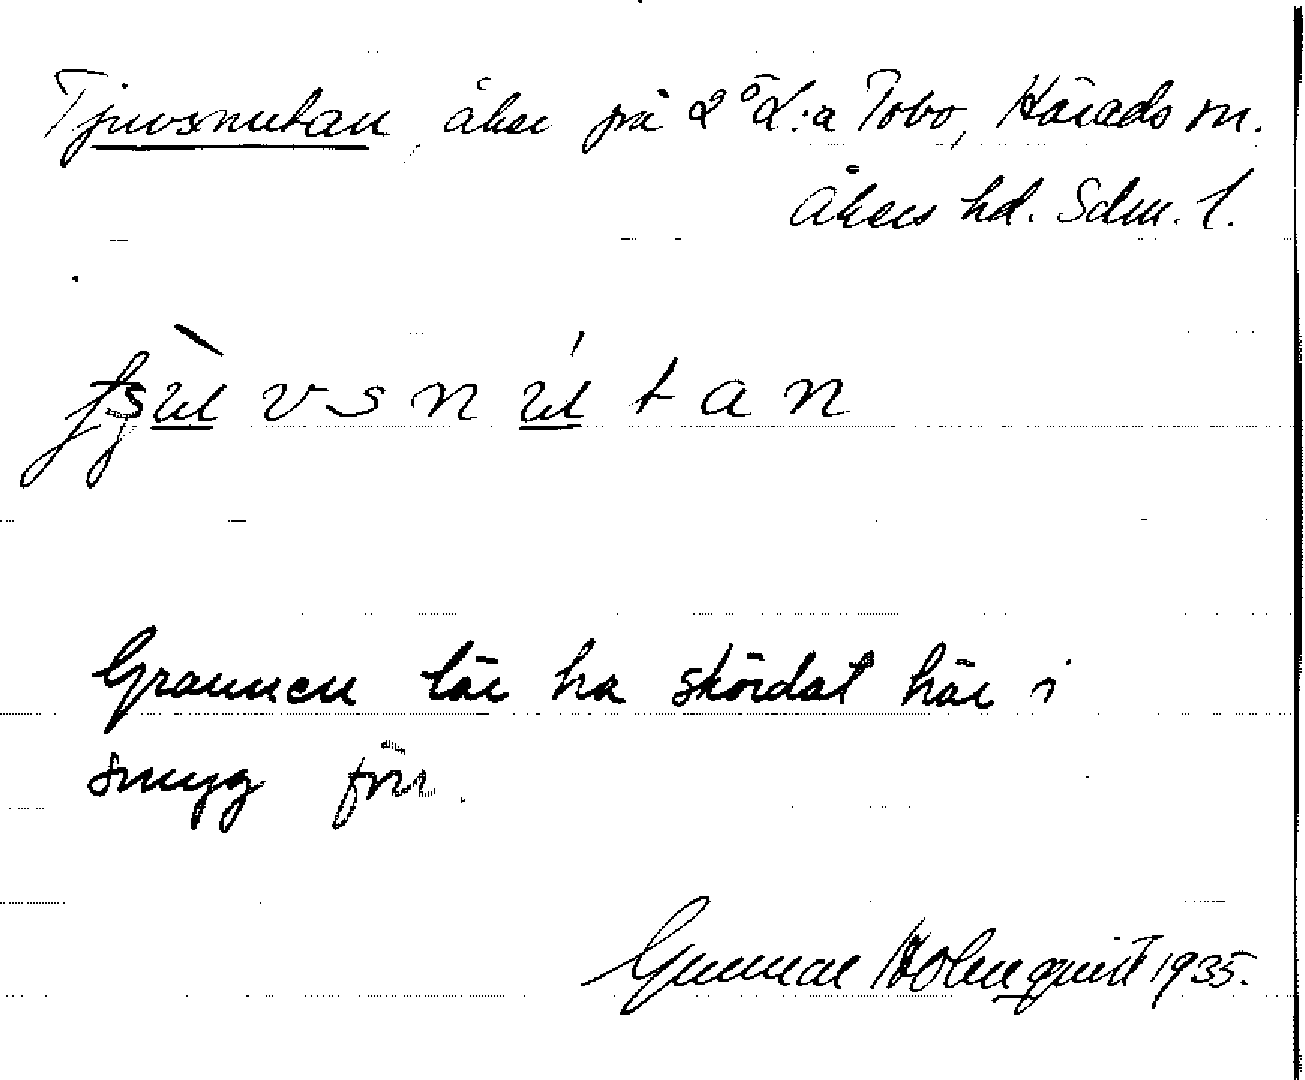 Tjuvsnutan, åker på 2° L:a Tobo, Härads sn.
Åkers hd. Sdm. l.
vsnutan
Grannen lär ha skördat här i
smyg förr.
Gunnar Holmquist 1935.